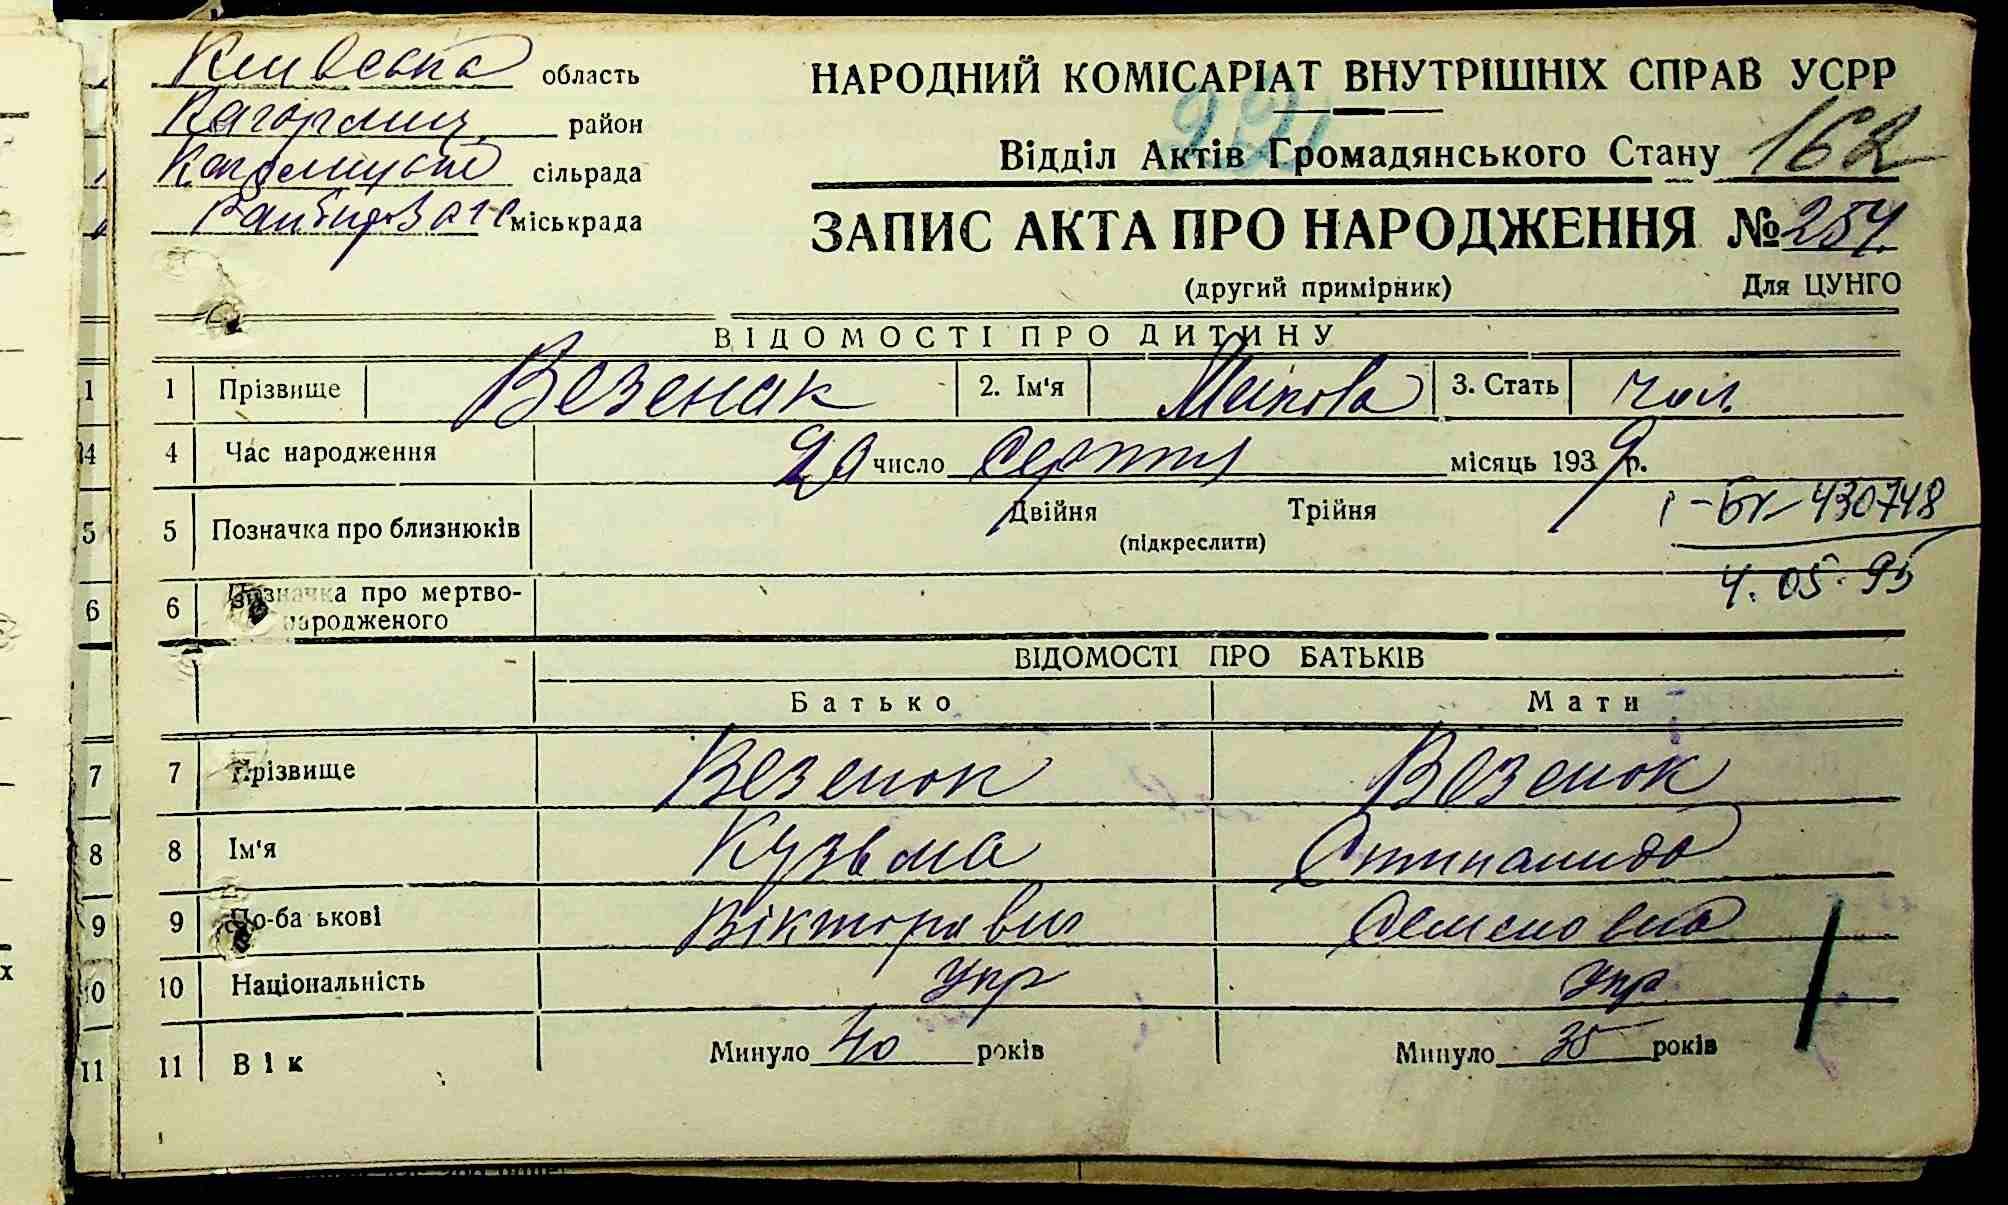 Київська область
Кагорлиц. район
Кагорлицька сільрада
міськрада
НАРОДНИЙ КОМІСАРІАТ ВНУТРІШНІХ СПРАВ УСРР
221
Відділ Актів Громадянського Стану 162
ЗАПИС АКТА ПРО НАРОДЖЕННЯ № 254
(другий примірник) Для ЦУНГО
ВІДОМОСТІ ПРО ДИТИНУ
1 1 Прізвище Везенак 2. Ім'я Микола 3. Стать чол.
4 4 Час народження 20 число серпня місяць 1939 р.
5 5 Позначка про близнюків Двійня Трійня
(підкреслити)
І-БК 430748
4.05.95
6 6 Позначка про мертво-
народженого
ВІДОМОСТІ ПРО БАТЬКІВ
Батько Мати
7 7 Прізвище Везенок Везенок
8 8 Ім'я Кузьма
9 9 По-ба ькові Вікторович Семеновна
10 10 Національність Укр Укр
11 11 Вік Минуло 40 років Минуло 35 років